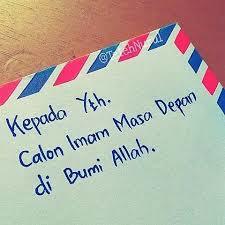 Kepada Yth.
Calon Imam Masa Depan
di Bumi Allah.